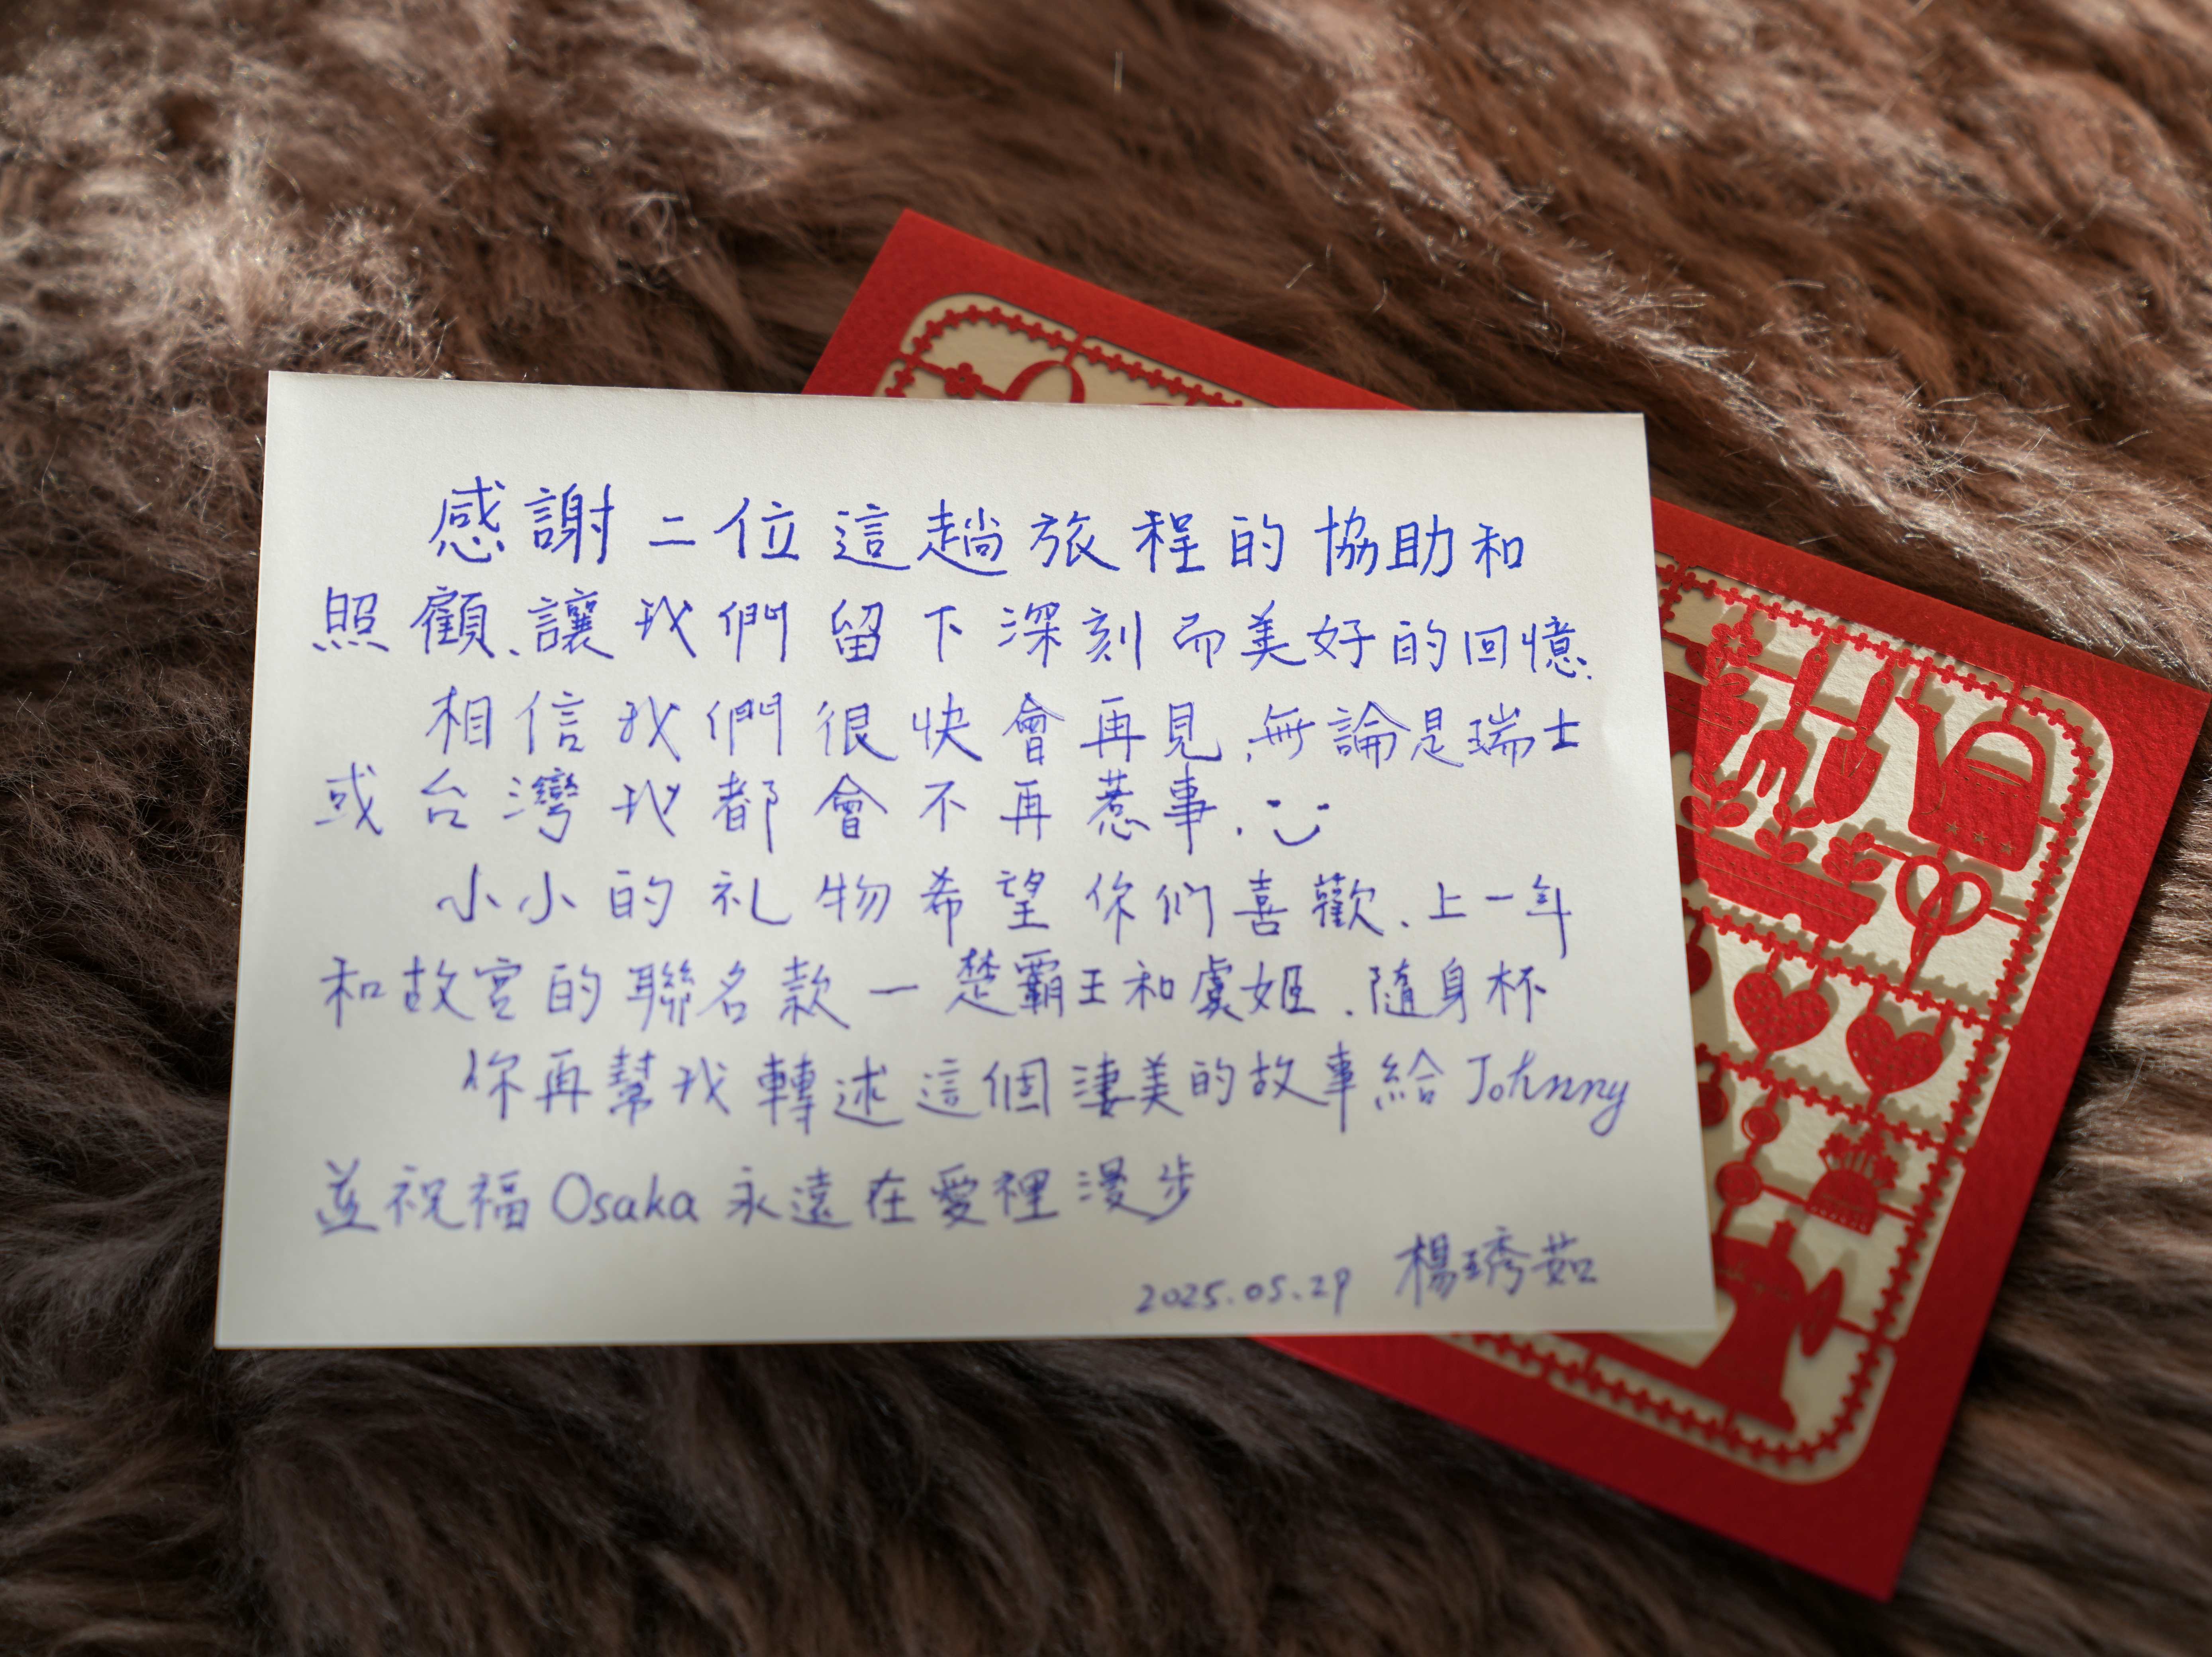 感謝二位這趟旅程的協助和
照顧、讓我們留下深刻而美好的回憶.
相信我們很快會再見,無論是瑞士
或台灣我都會不再惹事. :)
小小的礼物希望你們喜歡.上一年
和故宮的聯名款一楚霸王和虞姬.隨身杯
你再幫我轉述這個淒美的故事給Johnny
並祝福Osaka永遠在愛裡漫步
2025.05.29 楊琇茹